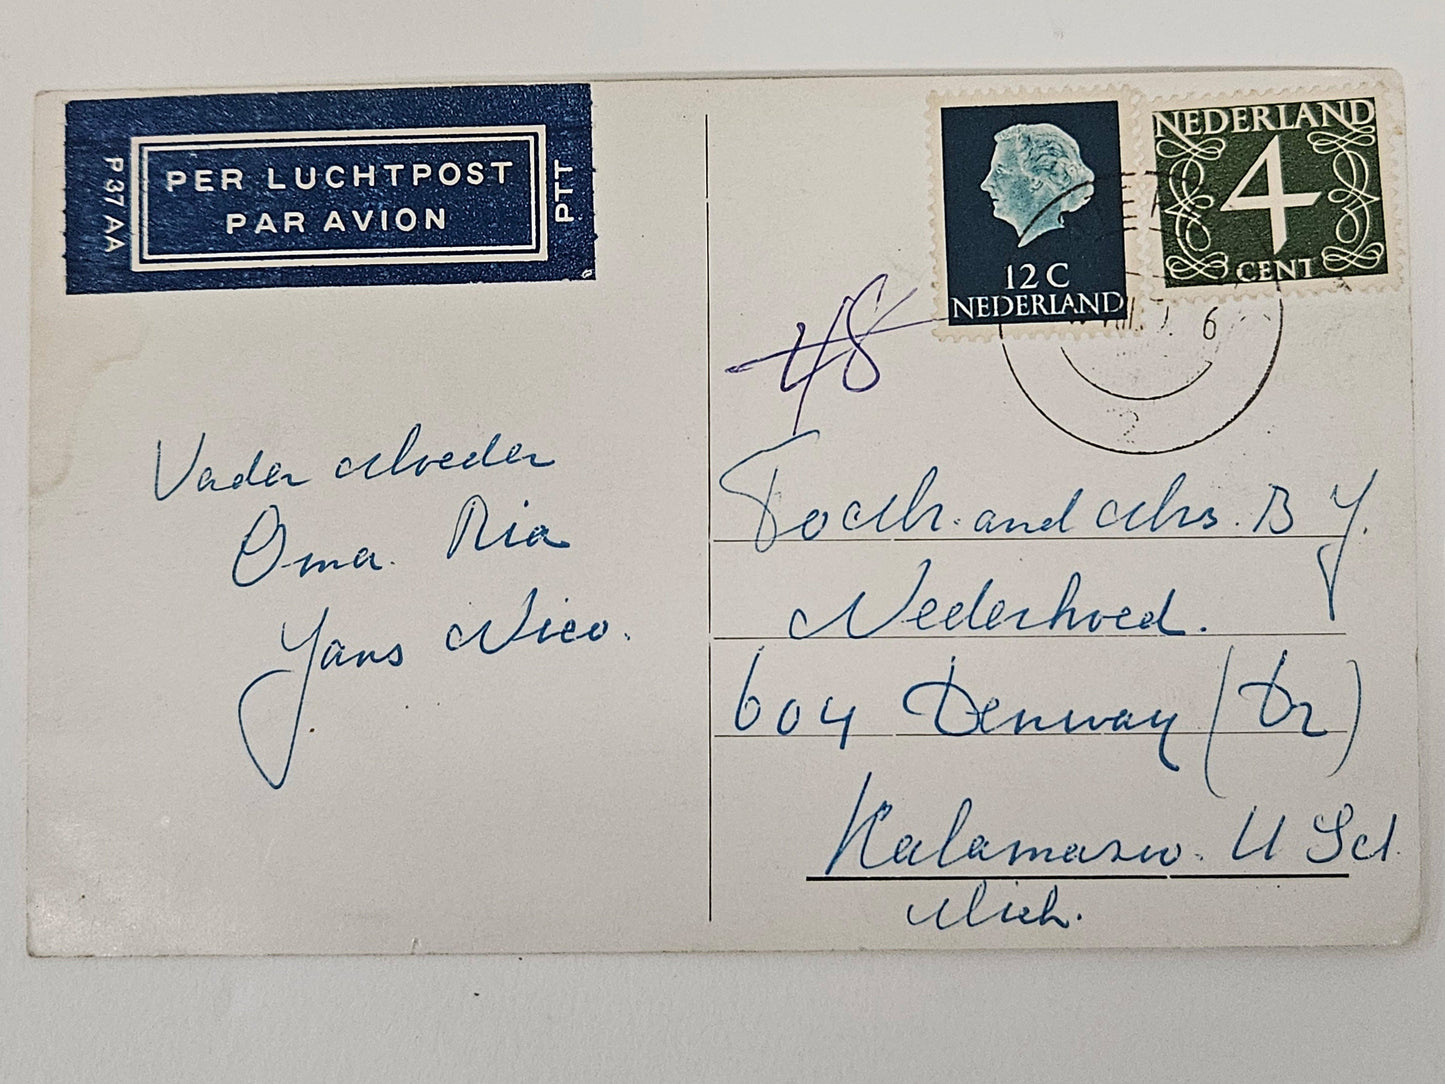 PER LUCHTPOST
PAR AVION
P 37 AA
PTT
12 C
NEDERLAND
NEDERLAND
4
CENT
6
2
48
Vader Moeder
Oma. Ria
Jans Nico.
To Mr. and Mrs. B Y.
Nederhoed.
604 Denway (Dr)
Kalamazoo. U Sa.
Mich.